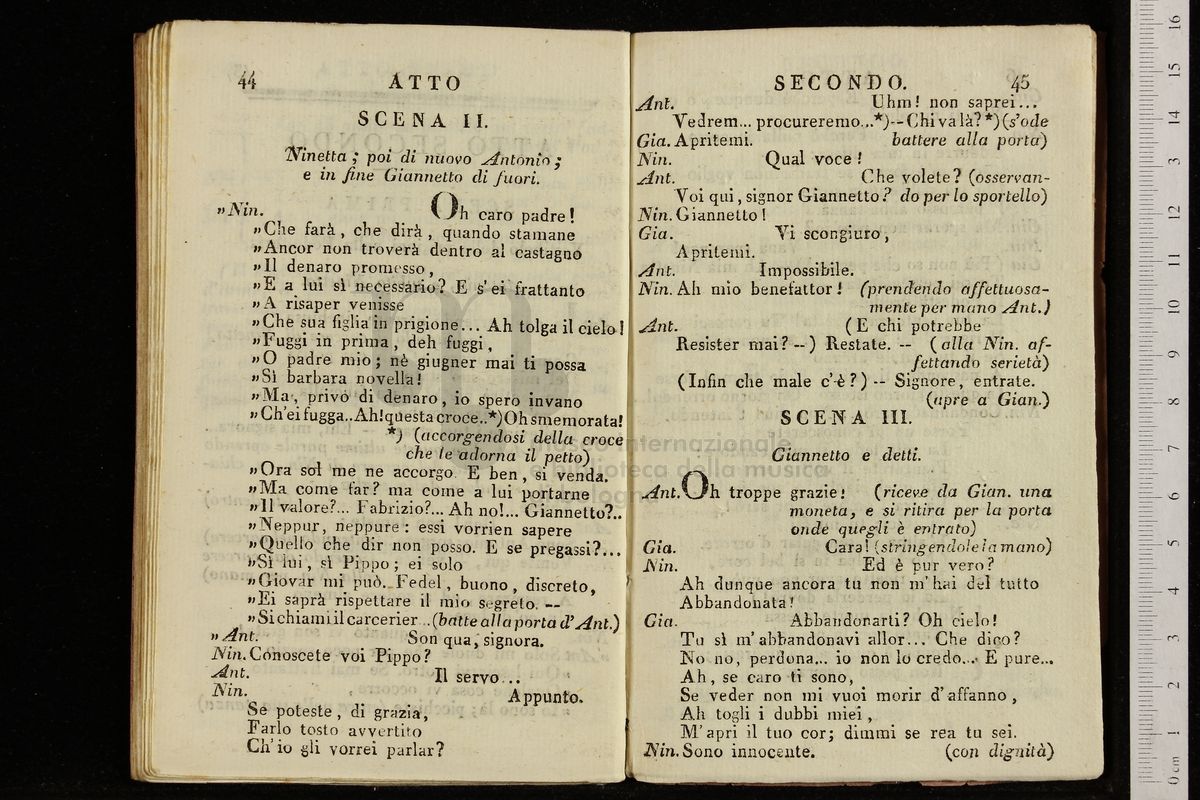 44 ATTO
SCENA II.
Ninetta; poi di nuovo Antonio;
e in fine Giannetto di fuori.
„Nin. Oh caro padre!
„Che farà, che dirà, quando stamane
„Ancor non troverà dentro al castagno
„Il denaro promesso,
„E a lui sì necessario? E s'ei frattanto
„A risaper venisse
„Che sua figlia in prigione... Ah tolga il cielo!
„Fuggi in prima, deh fuggi,
„O padre mio; nè giugner mai ti possa
„Sì barbara novella!
„Ma, privo di denaro, io spero invano
„Ch'ei fugga.. Ah! questa croce..*) Oh smemorata!
*) (accorgendosi della croce
che le adorna il petto)
„Ora sol me ne accorgo. E ben, si venda.
„Ma come far? ma come a lui portarne
„Il valore?... Fabrizio?... Ah no!... Giannetto?..
„Neppur, neppure: essi vorrien sapere
„Quello che dir non posso. E se pregassi?...
„Sì lui, sì Pippo; ei solo
„Giovar mi può. Fedel, buono, discreto,
„Ei saprà rispettare il mio segreto. —
„Si chiami il carcerier...(batte alla porta d'Ant.)
„Ant. Son qua, signora.
Nin. Conoscete voi Pippo?
Ant. Il servo...
Nin. Appunto.
Se poteste, di grazia,
Farlo tosto avvertito
Ch'io gli vorrei parlar?
SECONDO. 45
Ant. Uhm! non saprei...
Vedrem... procureremo...*)--Chi va là?*)(s'ode
Gia. Apritemi. battere alla porta)
Nin. Qual voce!
Ant. Che volete? (osservan-
Voi qui, signor Giannetto? do per lo sportello)
Nin. Giannetto!
Gia. Vi scongiuro,
Apritemi.
Ant. Impossibile.
Nin. Ah mio benefattor! (prendendo affettuosa-
mente per mano Ant.)
Ant. (E chi potrebbe
Resister mai? --) Restate. -- (alla Nin. af-
fettando serietà)
(Infin che male c'è?) -- Signore, entrate.
(apre a Gian.)
SCENA III.
Giannetto e detti.
Ant. Oh troppe grazie! (riceve da Gian. una
moneta, e si ritira per la porta
onde quegli è entrato)
Gia. Cara! (stringendole la mano)
Nin. Ed è pur vero?
Ah dunque ancora tu non m'hai del tutto
Abbandonata!
Gia. Abbandonarti? Oh cielo!
Tu sì m'abbandonavi allor... Che dico?
No no, perdona... io non lo credo... E pure...
Ah, se caro ti sono,
Se veder non mi vuoi morir d'affanno,
Ah togli i dubbi miei,
M'apri il tuo cor; dimmi se rea tu sei.
Nin. Sono innocente. (con dignità)
m
museo internazionale
e biblioteca della musica
0 cm 1 2 3 4 5 6 7 8 9 10 11 12 13 14 15 16